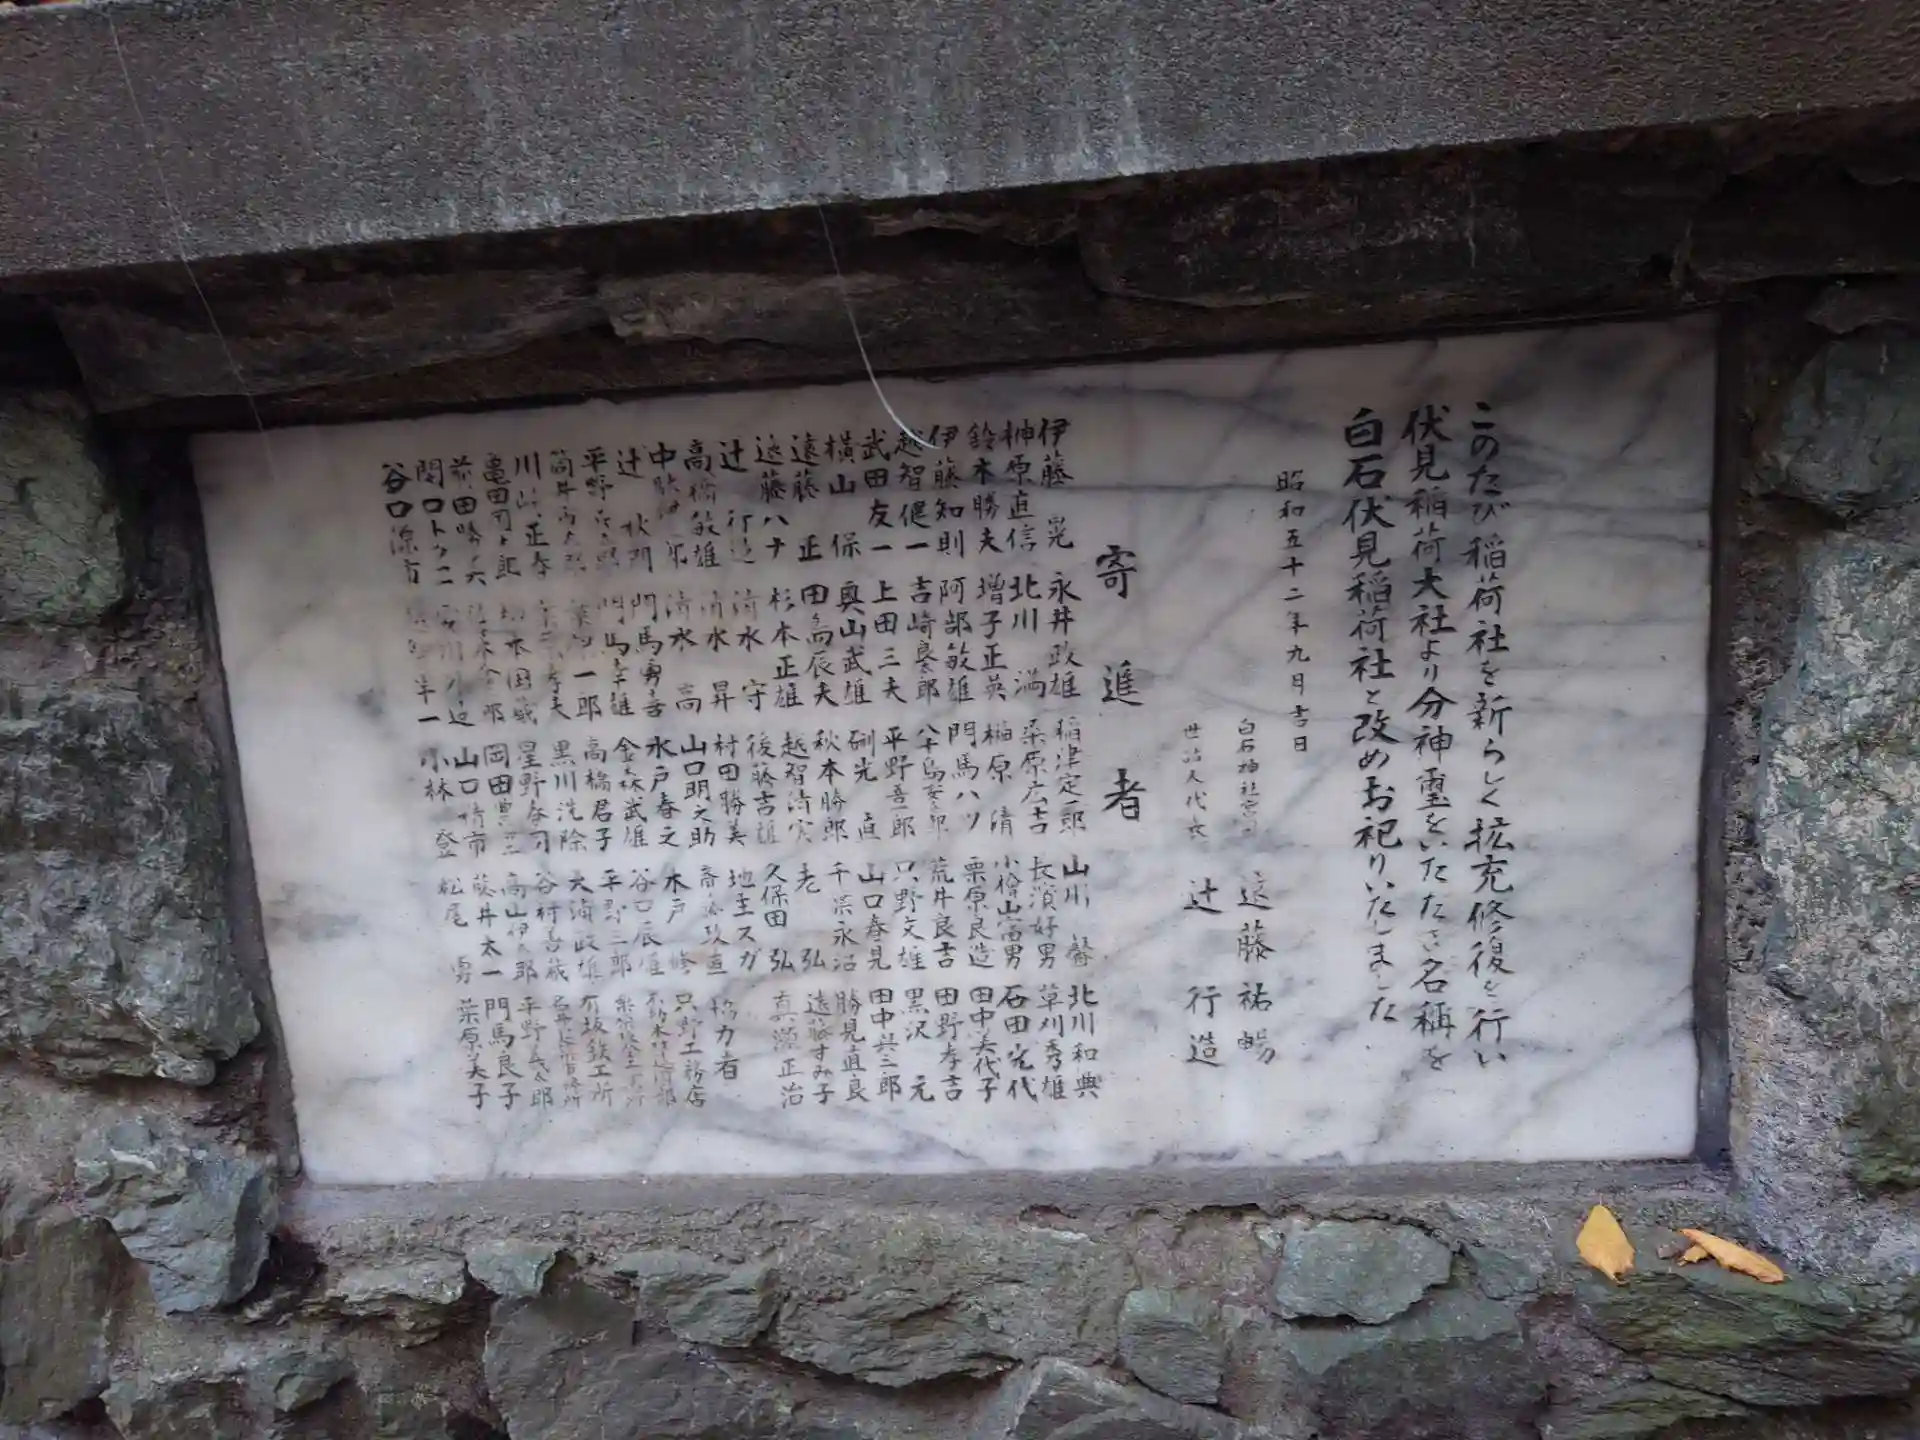 このたび稲荷社を新らしく拡充修復を行い
伏見稲荷大社より分神璽をいただき名称を
白石伏見稲荷社と改めお祀りいたしました
昭和五十二年九月吉日
白石神社宮司 遠藤祐暢
世話人代表 辻行造
寄進者
伊藤晃
榊原直信
鈴木勝夫
伊藤知則
越智健一
武田友一
横山保
遠藤正
遠藤ハナ
辻行造
高橋敏雄
辻
平野
筒井
川 正春
亀田
前田勝
関口トクニ
谷口源市
永井政雄
北川満
増子正英
阿部敏雄
吉崎良郎
上田三夫
奥山武雄
田島辰夫
杉本正雄
清水守
清水昇
清水高
門馬勇喜
門馬幸雄
一郎
稲津定一郎
栗原広吉
榊原清
門馬ハツ
平野吾郎
硎光直
秋本勝郎
越智清実
後藤吉雄
村田勝美
山口明之助
水戸春之
金森武雄
高橋君子
黒川洗除
星野春司
岡田豊三
山口晴市
小林登
山川馨
長濱好男
小檜山富男
栗原良造
荒井良吉
只野文雄
山口春見
千葉永治
老弘
久保田弘
地主スガ
斎藤政直
木戸修
谷口辰雄
平野三郎
大浦政雄
谷村吾蔵
高山伊太郎
藤井太一
松尾勇
北川和典
草刈秀雄
石田光代
田中美代子
田野孝吉
黒沢元
田中共三郎
勝見直良
遠藤すみ子
真瀬正治
協力者
只野工務店
有坂鉄工所
平野義太郎
門馬良子
栗原美子